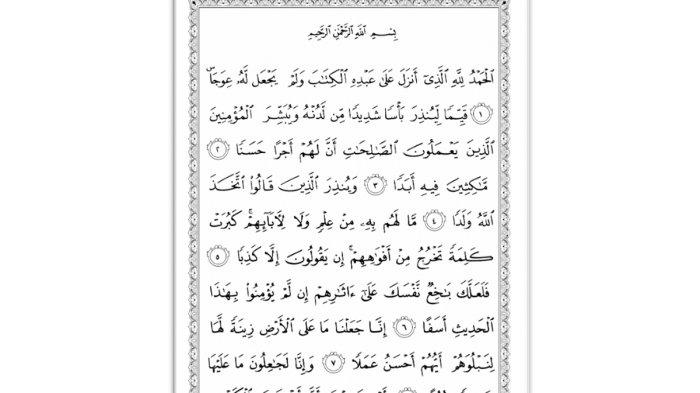 بِسْمِ ٱللَّهِ ٱلرَّحْمَٰنِ ٱلرَّحِيمِ
ٱلْحَمْدُ لِلَّهِ ٱلَّذِىٓ أَنزَلَ عَلَىٰ عَبْدِهِ ٱلْكِتَٰبَ وَلَمْ يَجْعَل لَّهُۥ عِوَجَاۜ
١ قَيِّمًا لِّيُنذِرَ بَأْسًا شَدِيدًا مِّن لَّدُنْهُ وَيُبَشِّرَ ٱلْمُؤْمِنِينَ
ٱلَّذِينَ يَعْمَلُونَ ٱلصَّٰلِحَٰتِ أَنَّ لَهُمْ أَجْرًا حَسَنًا ٢
مَّٰكِثِينَ فِيهِ أَبَدًا ٣ وَيُنذِرَ ٱلَّذِينَ قَالُوا۟ ٱتَّخَذَ
ٱللَّهُ وَلَدًا ٤ مَّا لَهُم بِهِۦ مِنْ عِلْمٍ وَلَا لِءَابَآئِهِمْ ۚ كَبُرَتْ
كَلِمَةً تَخْرُجُ مِنْ أَفْوَٰهِهِمْ ۚ إِن يَقُولُونَ إِلَّا كَذِبًا ٥
فَلَعَلَّكَ بَٰخِعٌ نَّفْسَكَ عَلَىٰٓ ءَاثَٰرِهِمْ إِن لَّمْ يُؤْمِنُوا۟ بِهَٰذَا
ٱلْحَدِيثِ أَسَفًا ٦ إِنَّا جَعَلْنَا مَا عَلَى ٱلْأَرْضِ زِينَةً لَّهَا
لِنَبْلُوَهُمْ أَيُّهُمْ أَحْسَنُ عَمَلًا ٧ وَإِنَّا لَجَٰعِلُونَ مَا عَلَيْهَا